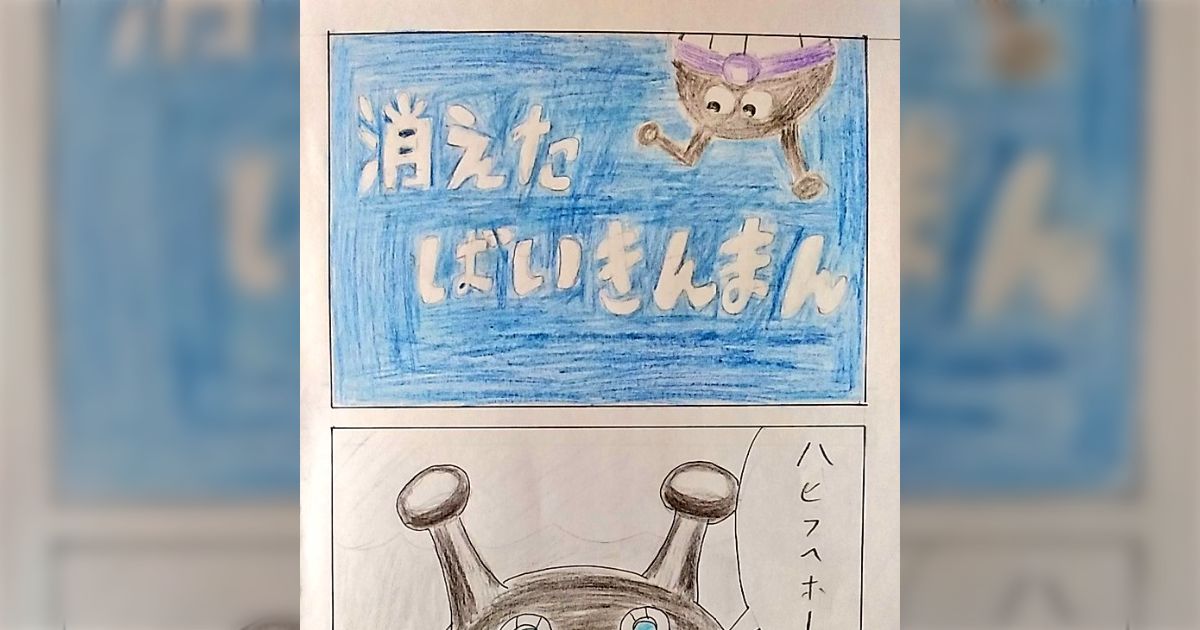 消えた
ばいきんまん
ハヒフヘホー